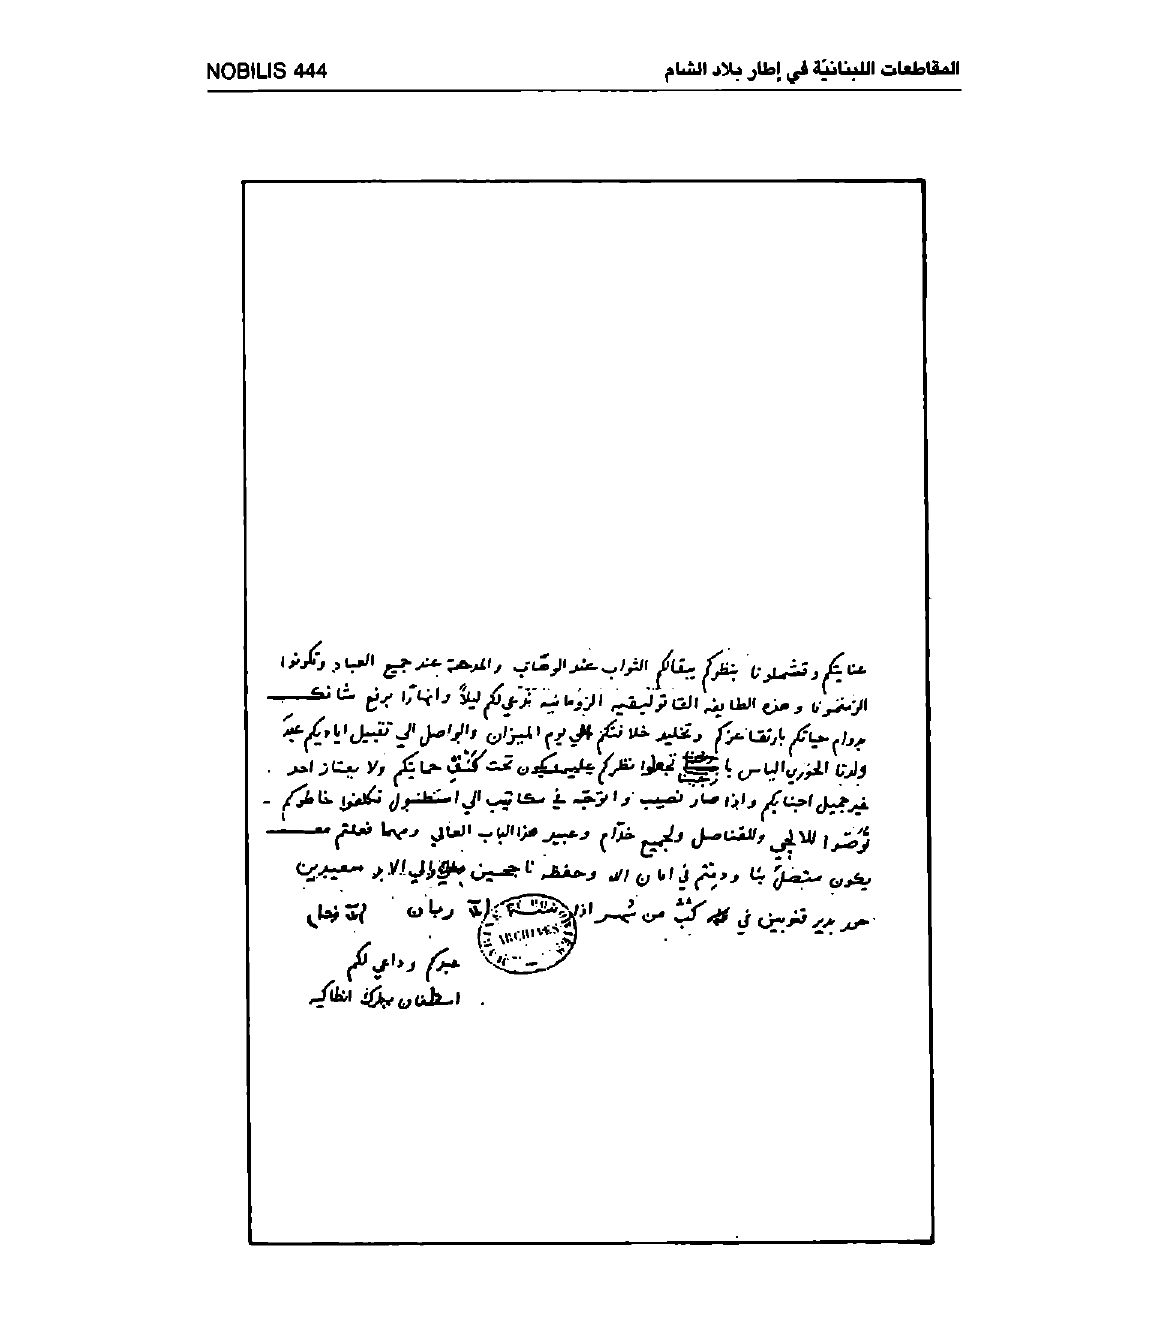 المقاطعات اللبنانيّة في إطار بلاد الشام
NOBILIS 444
عنايتكم وتشملونا بنظركم يبقالكم الثواب عند الوهّاب والمدحة عند جميع العباد وتكونوا
وهذه الطايفه القاتوليقيه الرومانيه تدعي لكم ليلاً وانهارًا برفع شانكم
بدوام حياتكم بارتقا عزكم وتخليد خلافتكم الي يوم الميزان والواصل الي تقبيل اياديكم عبد
ولدنا الخوري الياس تجعلوا نظركم عليه يكون تحت كنف حمايتكم ولا يعتاز احد
غير جميل احبابكم واذا صار نصيب واتوجّه في مكاتيب الي استطنبول تكلفوا خاطركم
تُوصّوا للالجي وللقناصل ولجميع خدّام وعبيد هذا الباب العالي ومهما فعلتم معه
يكون متصلّ بنا ودمتم في امان الله وحفظه ناجحين والي الابد سعيدين
حرر بدير قنوبين في من شهر اذار
ARCHIVES
عبدكم وداعي لكم
اسطفان بطرك انطاكيه